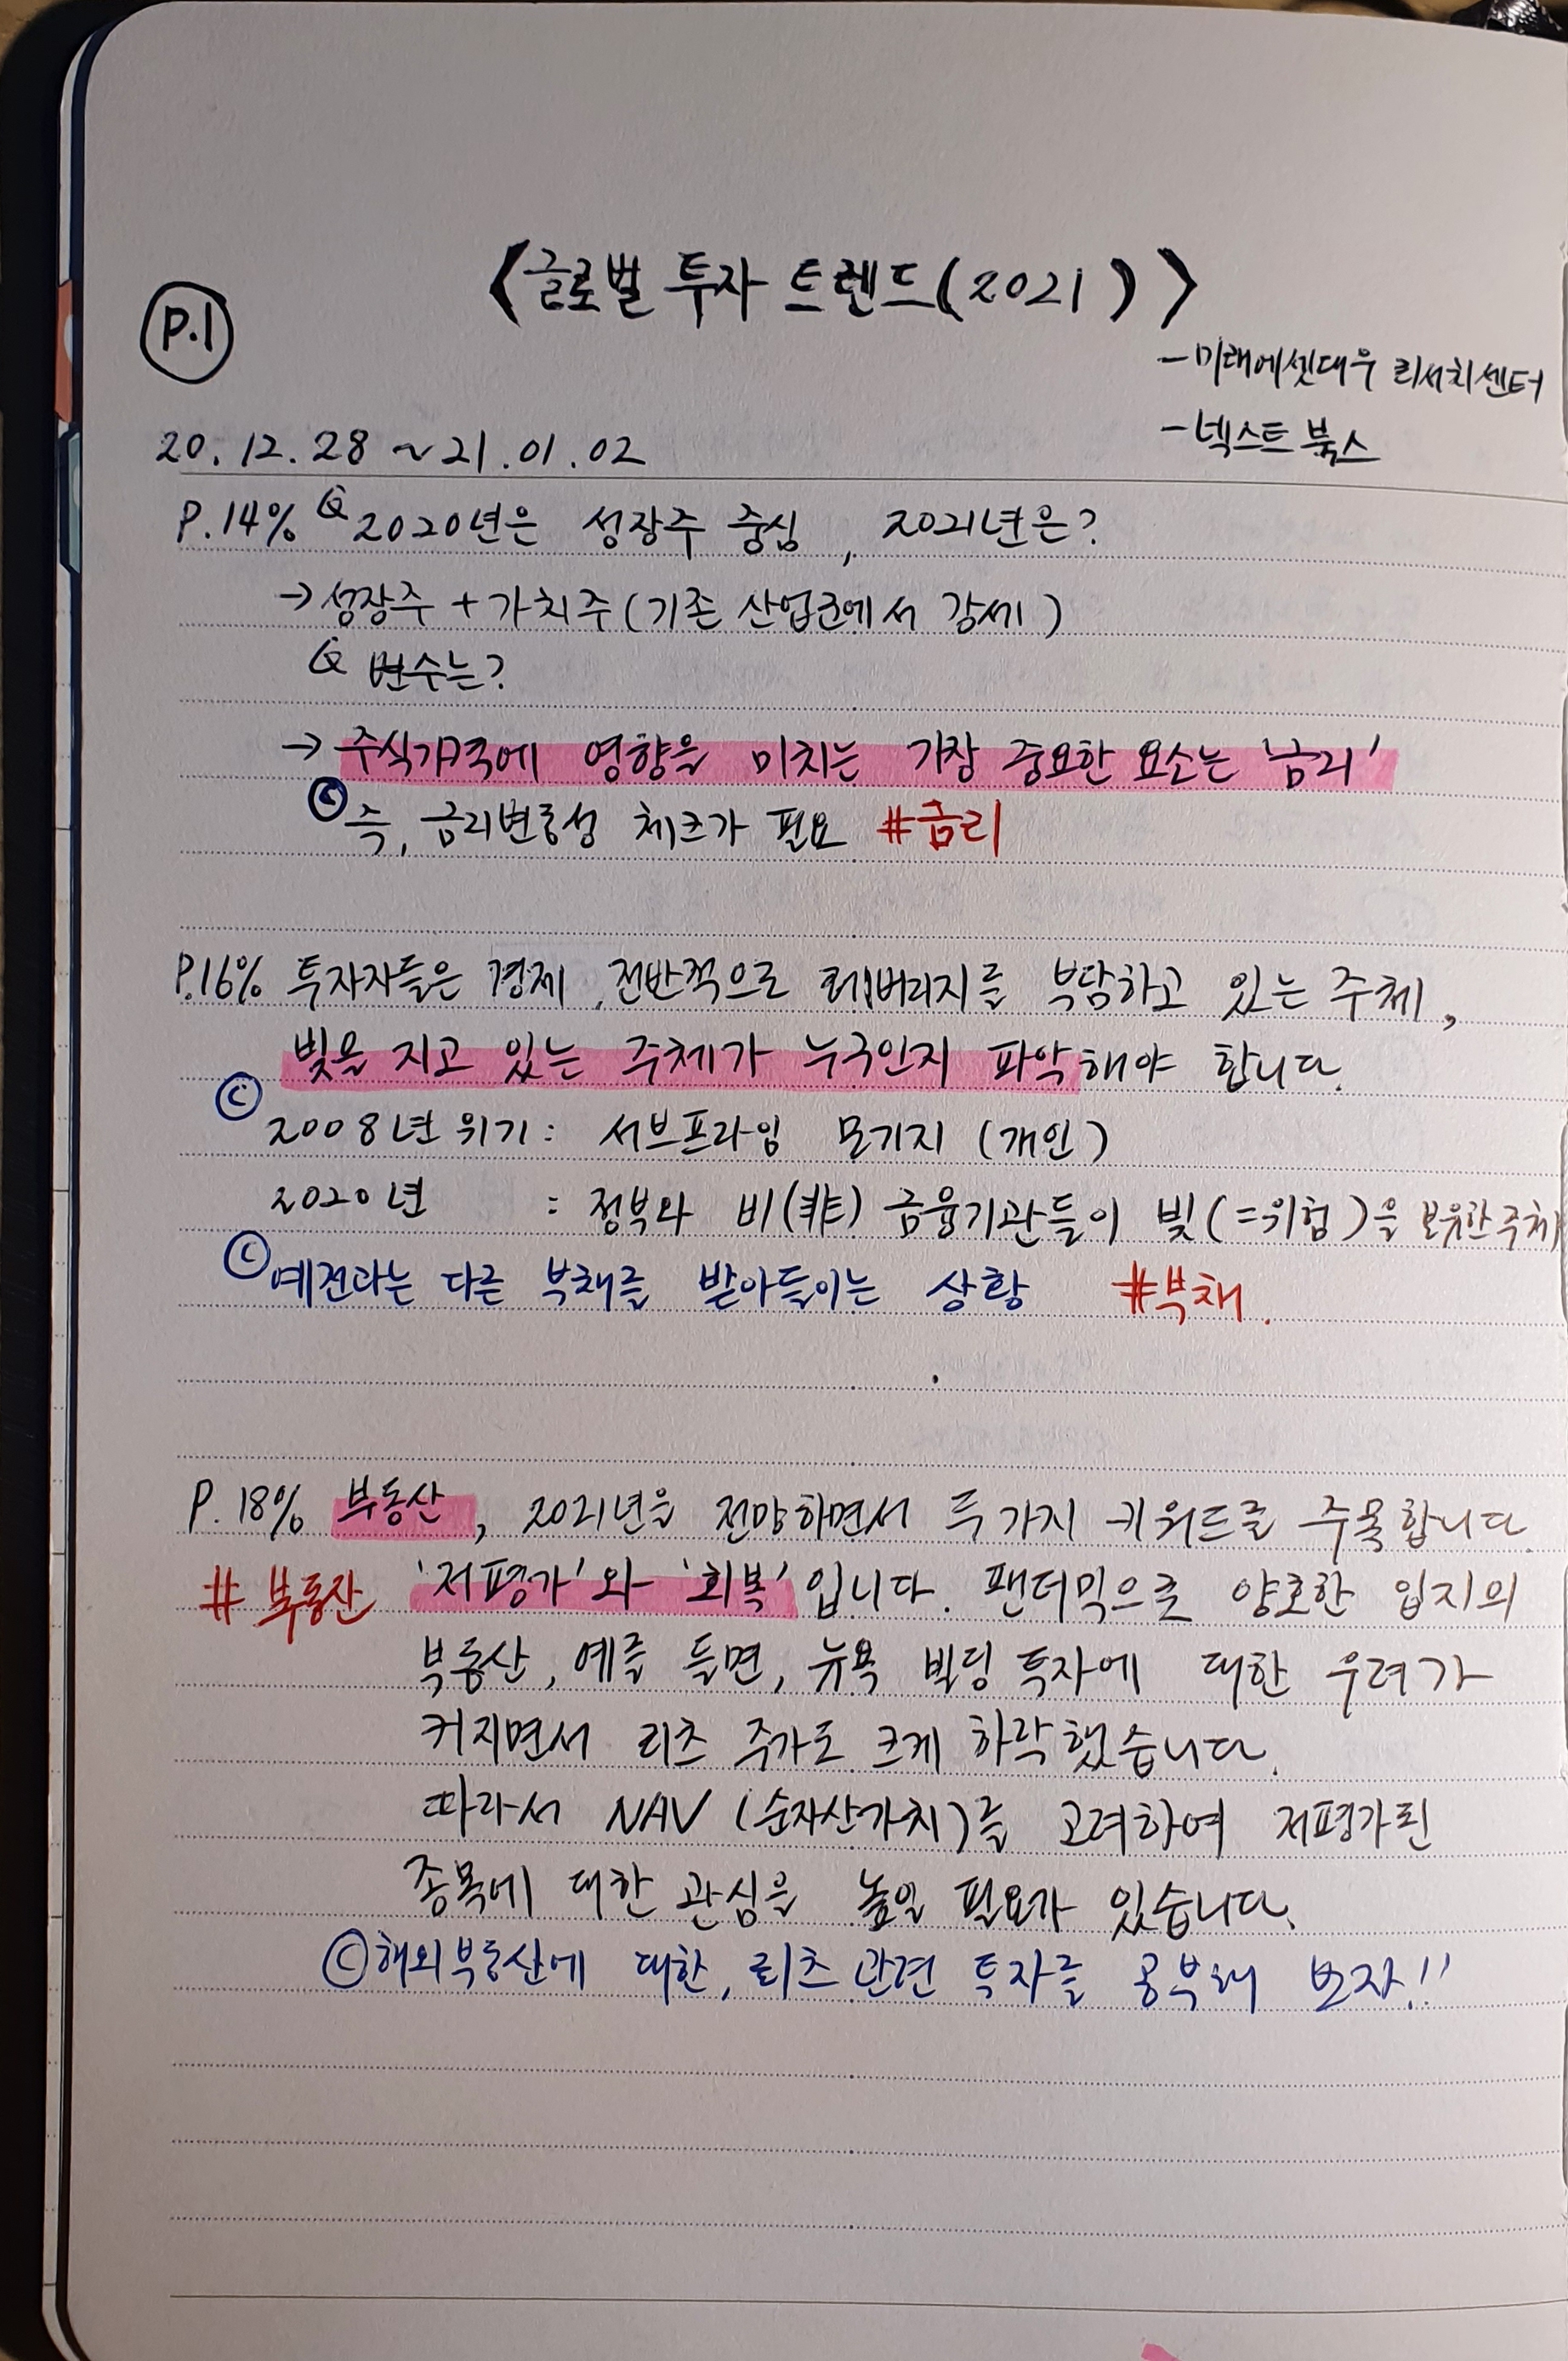 <글로벌 투자 트렌드(2021)>
P.1
-미래에셋대우 리서치센터
20.12.28 ~21.01.02
-넥스트 북스
P.14% Q 2020년은 성장주 중심, 2021년은?
→ 성장주 + 가치주(기존 산업군에서 강세)
Q 변수는?
→ 주식가격에 영향을 미치는 가장 중요한 요소는 '금리'
ⓒ 즉, 금리변동성 체크가 필요 #금리
P.16% 투자자들은 경제 전반적으로 레버리지를 부담하고 있는 주체,
빚을 지고 있는 주체가 누구인지 파악해야 합니다.
ⓒ 2008년 위기: 서브프라임 모기지 (개인)
2020년 : 정부와 비(非) 금융기관들이 빚(=위험)을 보유한 주체
ⓒ 예전과는 다른 부채를 받아들이는 상황 #부채.
P.18% 부동산, 2021년을 전망하면서 두 가지 키워드를 주목합니다.
#부동산 '저평가'와 '회복'입니다. 팬더믹으로 양호한 입지의
부동산, 예를 들면, 뉴욕 빌딩 투자에 대한 우려가
커지면서 리츠 주가도 크게 하락했습니다.
따라서 NAV (순자산가치)를 고려하여 저평가된
종목에 대한 관심을 높일 필요가 있습니다.
ⓒ 해외부동산에 대한, 리츠 관련 투자를 공부해 보자!!